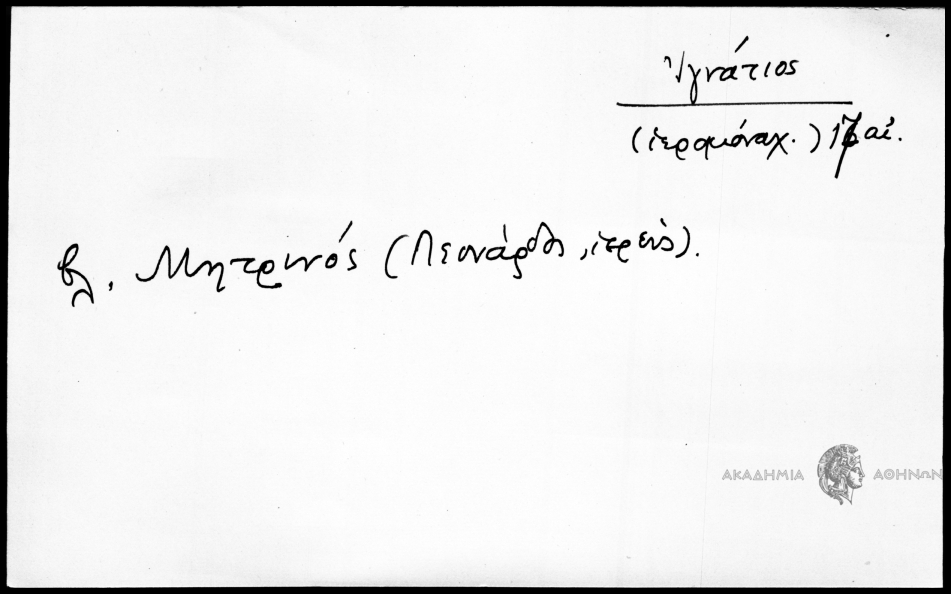 Ἰγνάτιος
(ἱερομόναχ.) 17 αἰ.
βλ. Μητρινός (Λεονάρδος, ἱερεύς).
ΑΚΑΔΗΜΙΑ ΑΘΗΝΩΝ